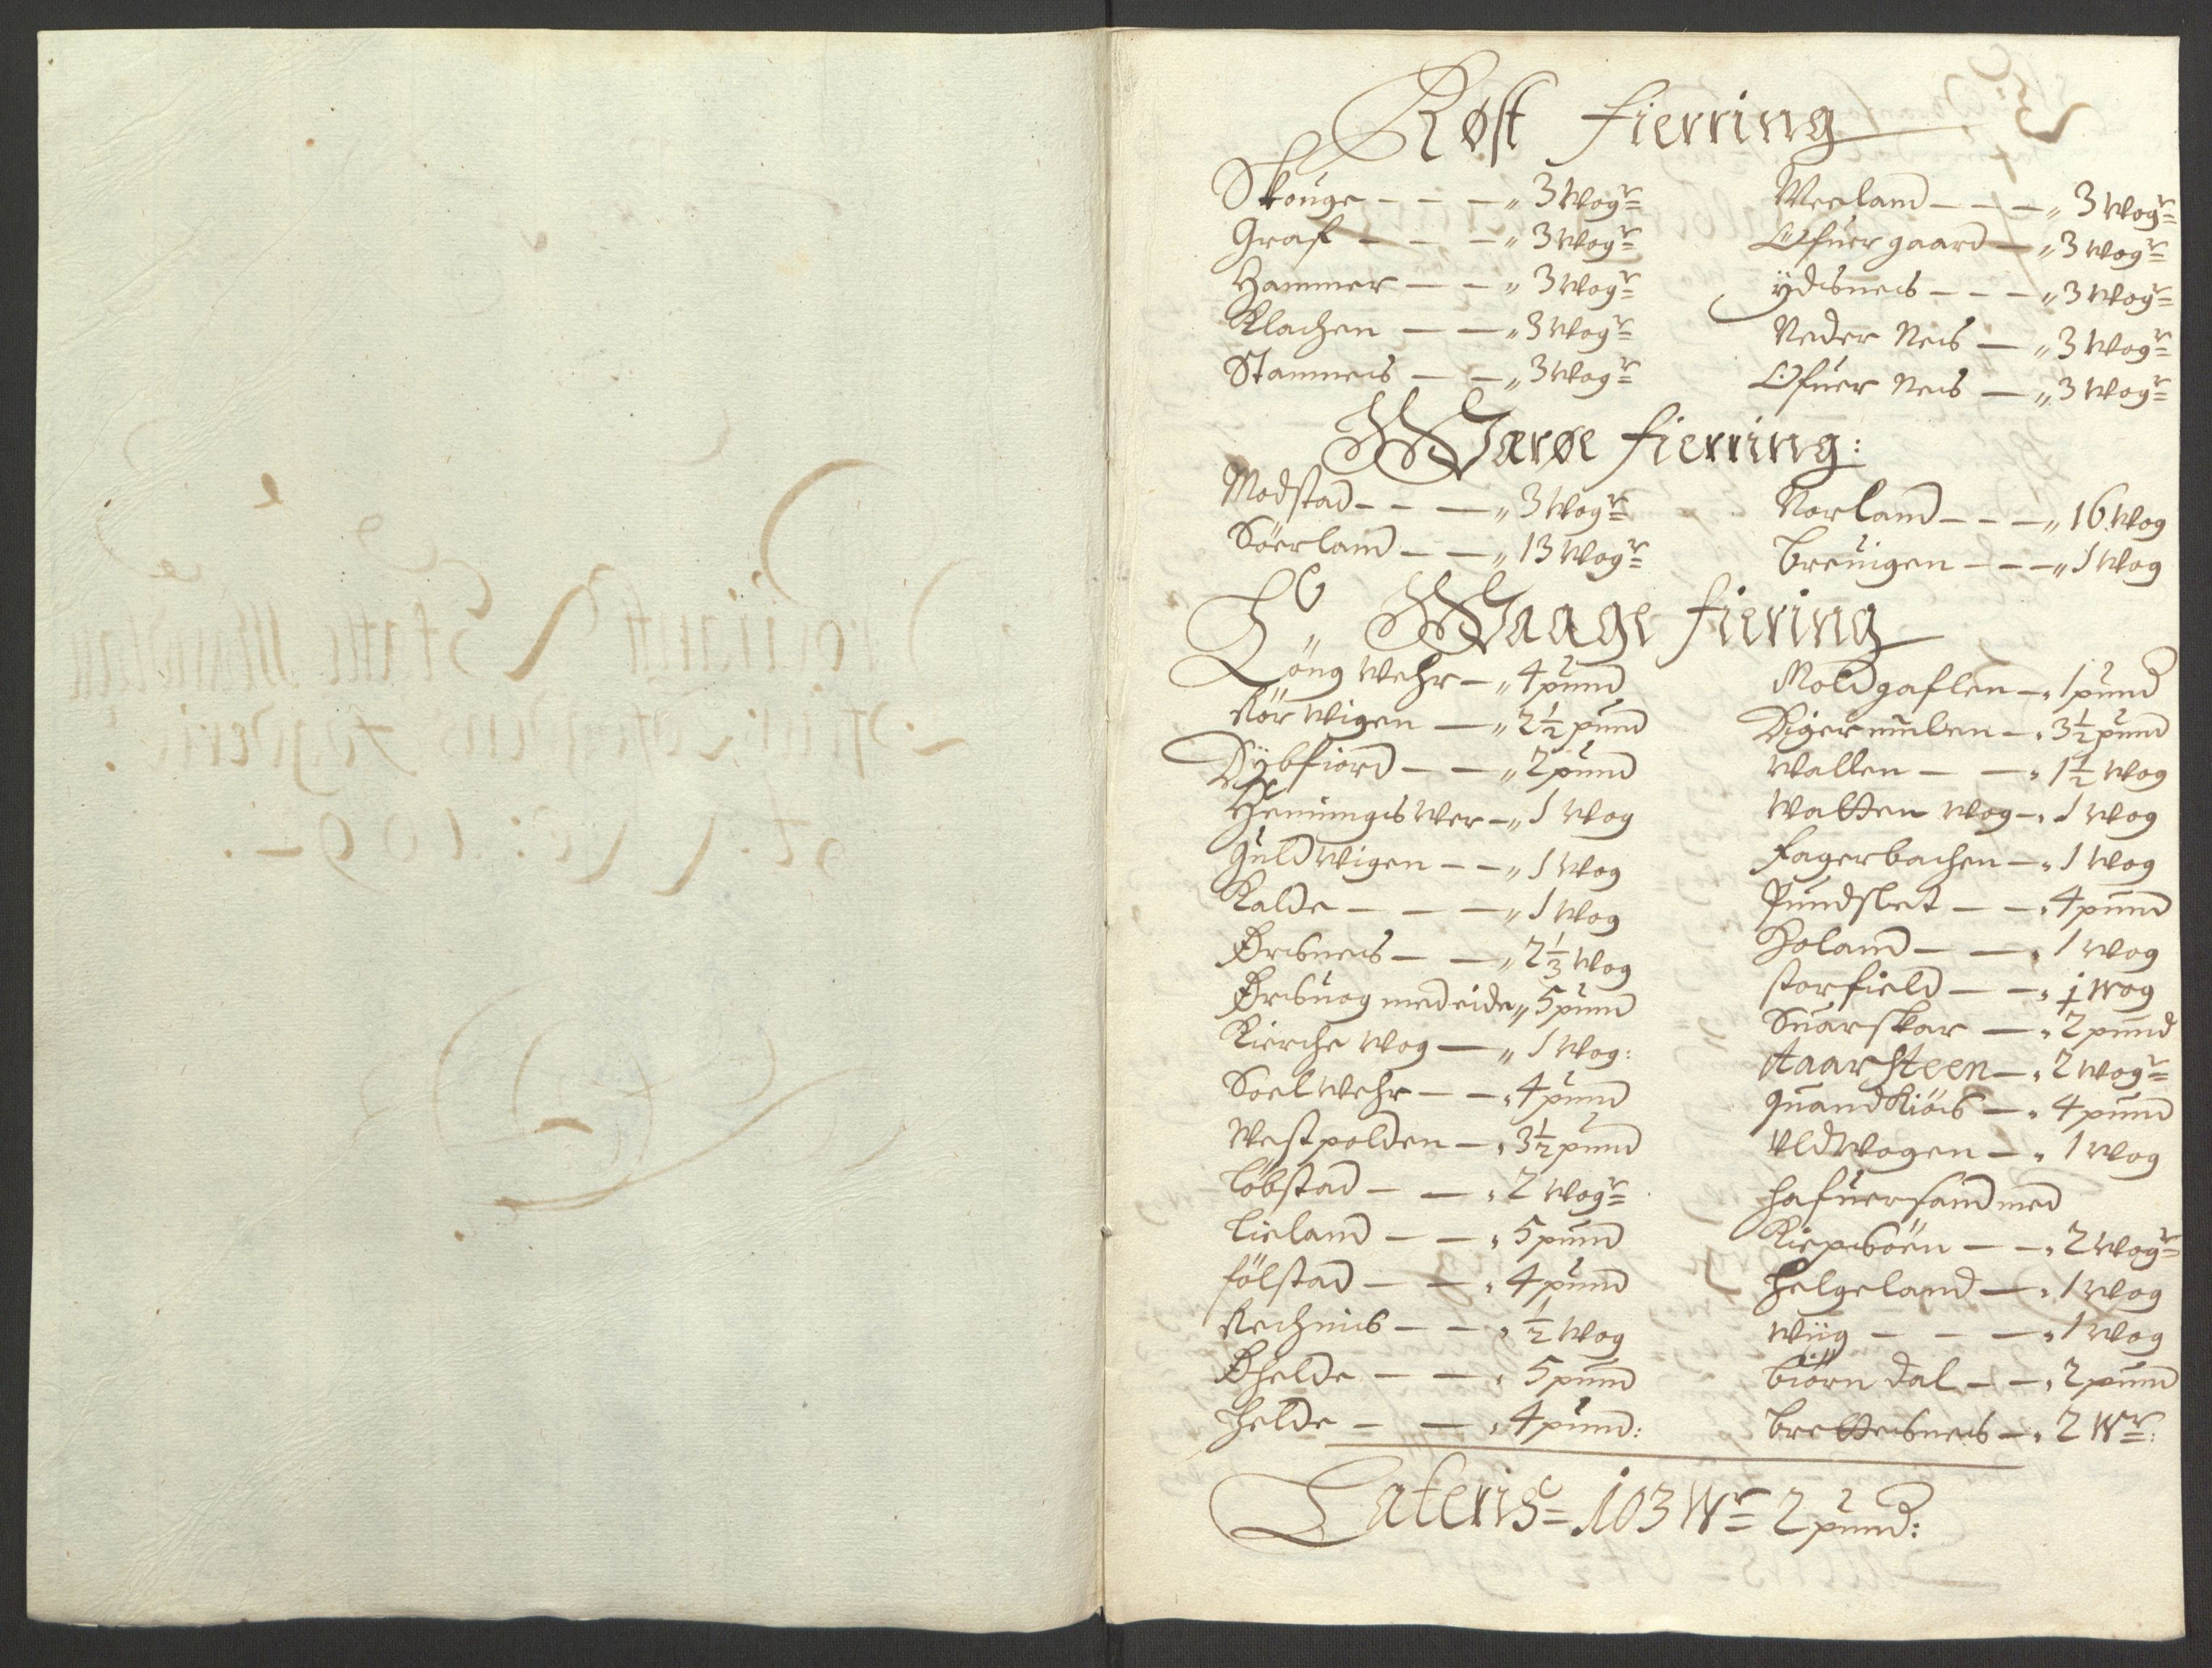 Røst fierring
Skouge - - - „ 3 Wogr
Graf - - - „ 3 Wogr
Hammer - - „ 3 Wogr
Klachen - - „ 3 Wogr
Stamneis - - „ 3 Wogr
Weeland - - - „ 3 Wogr
Ofuer gaard - „ 3 Wogr
ÿdisneis - - - „ 3 Wogr
Neder Neis - „ 3 Wogr
Ofuer Neis - „ 3 Wogr
Wærøe fierring:
Modstad - - - „ 3 Wogr
Söerland - - „ 13 Wogr
Norland - - - „ 16 Wog
breuigen - - - „ 1 Wog
Waage fiering
Löng Wehr - „ 4 pund
Rör Wigen - „ 2½ pund
Dÿbfiord - - „ 2 pund
Henningis Wer - „ 1 Wog
Guldwigen - - „ 1 Wog
Kalde - - - „ 1 Wog
Ørisneis - - „ 2⅓ Wog
Ørisuog med eide „ 5 pund
Kierche Wog - „ 1 Wog:
Soelwehr - - „ 4 pund
Westpolden - „ 3½ pund
Löbstad - - „ 2 Wogr
Lieland - - „ 5 pund
fölstad - - „ 4 pund
Rechnis - - „ ½ Wog
Øhelde - - „ 5 pund
helde - - „ 4 pund:
Moldgaflen - „ 1 pund
Digermulen - „ 3½ pund
Wallen - - „ 1½ Wog
Watten Wog - „ 1 Wog
Fagerbachen - „ 1 Wog
Pundslet - - „ 4 pund
Holand - - „ 1 Wog
storfield - - „ 1 Wog
Snarskar - „ 2 pund
Aaarsteen - „ 2 Wogr
Quandkiöis - „ 4 pund
Uldwogen - „ 1 Wog
hafuersand med
Kiepisöen - - „ 2 Wogr
helgeland - „ 1 Wog
Wiig - - - „ 1 Wog
biörn dal - - „ 2 pund
brettesneis - „ 2 Wr:
Lateris 103 Wr 2 pund: